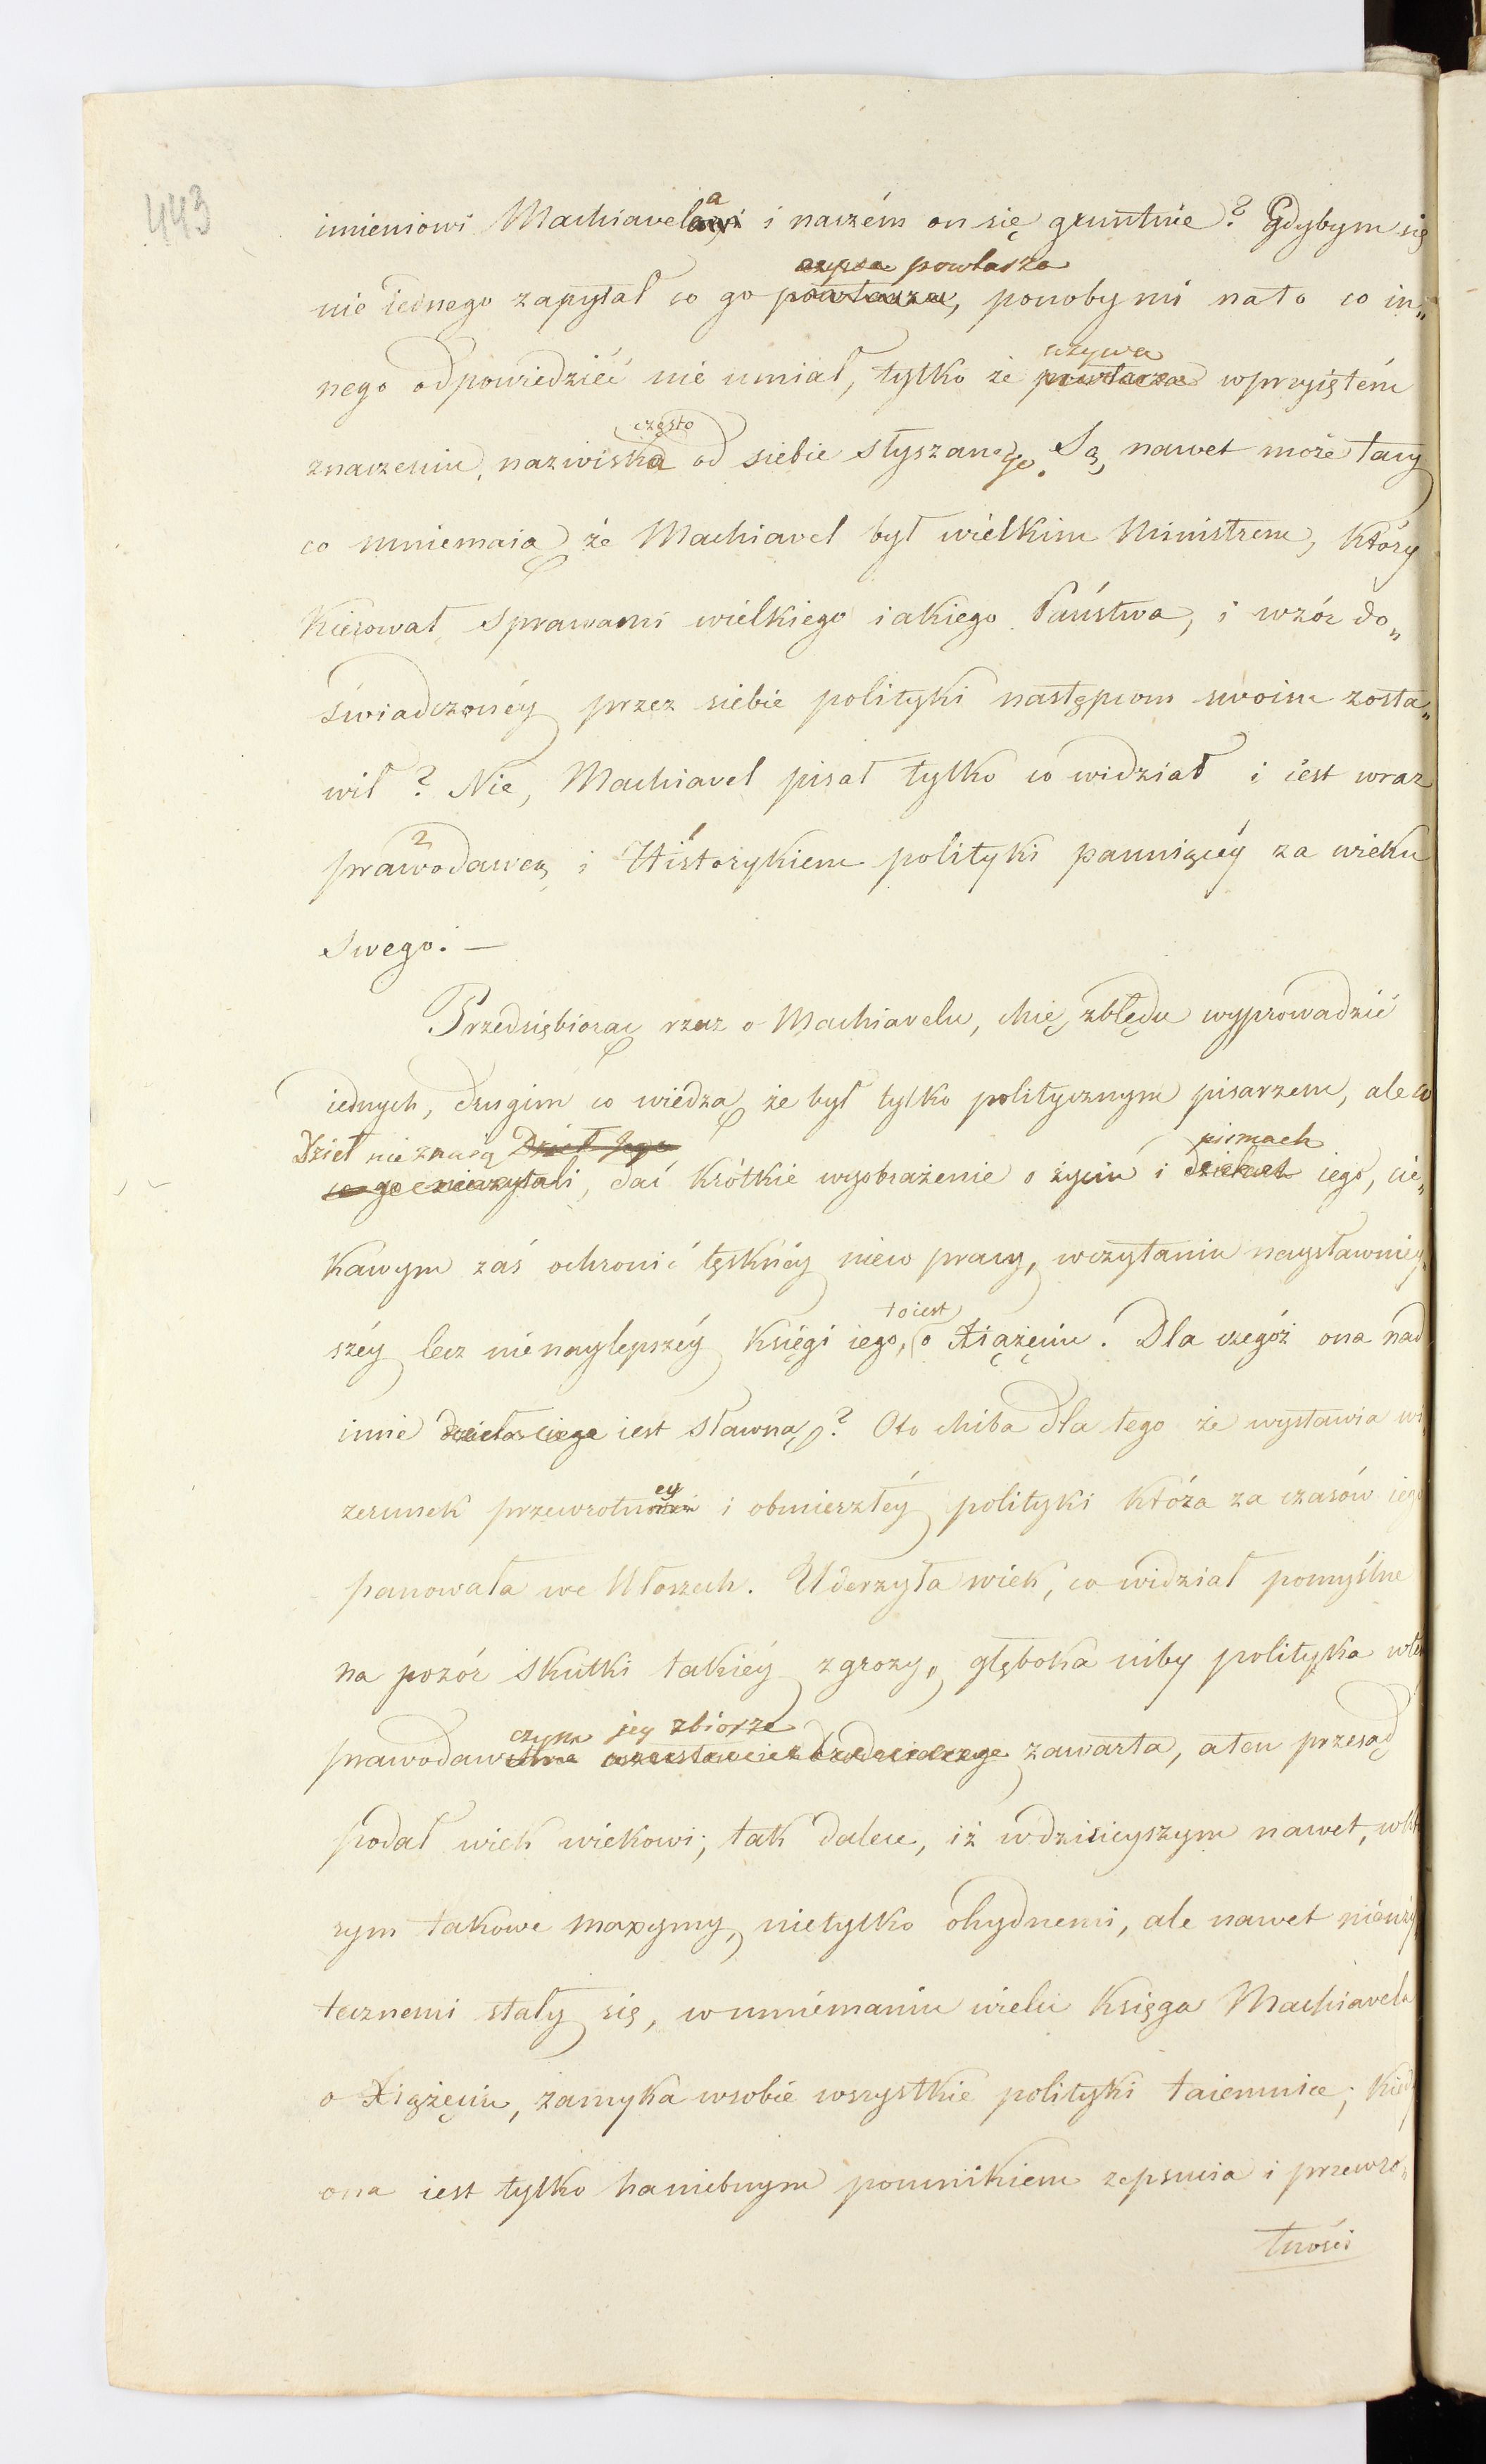 443
imieniowi Machiavela i naczém on się gruntuie? Gdybym się
powtarza
nie iednego zapytał co go powtarza, ponoby mi na to co in„
używa
nego odpowiedzieć nie umiał, tylko że powtarza wprzyiętém
często
znaczeniu, nazwiska od siebie słyszanego. Są, nawet może tacy
co mniemaią że Machiavel był wielkim Ministrem, który
kierował sprawami wielkiego iakiego Państwa, i wzór do„
świadczonéy przez siebie polityki następcom swoim zosta„
wił? Nie, Machiavel pisał tylko co widział i iest wraz
prawodawcą i Historykiem polityki panuiącéy za wieku
swego. —
Przedsiębiorąc rzecz o Machiavelu, chcę zbłędu wyprowadzić
iednych, drugim co wiedzą że był tylko politycznym pisarzem, ale co
Dzieł nieznaią Dzieł Jego pismach
co go nieczytali, dać krótkie wyobrażenie o życiu i dziełach iego, cie„
kawym zaś ochronić tęsknéy nieco pracy, wczytaniu naysławniey„
to iest
széy lecz nienaylepszéy księgi iego, o Xiążęciu. Dla czegóż ona nad
inne dzieła iego iest sławną? Oto chiba dla tego że wystawia wi
ey
zerunek przewrotn i obmierzłéy polityki która za czasów iego
panowała we Włoszech. Uderzyła wiek, co widział pomyślne
na pozór skutki takiéy zgrozy, głęboka niby polityka wtém
czym jey zbiorze
prawodaw zawarta, aten przesąd
podał wiek wiekowi; tak dalece, iż wdzisieyszym nawet, wktó
rym takowe maxymy, nietylko ohydnemi, ale nawet nieuży
tecznemi stały się, wmniemaniu wielu księga Machiavela
o Xiążęciu, zamyka wsobie wszystkie polityki taiemnice; kiedy
ona iest tylko haniebnym pomnikiem zepsucia i przewro„
tności